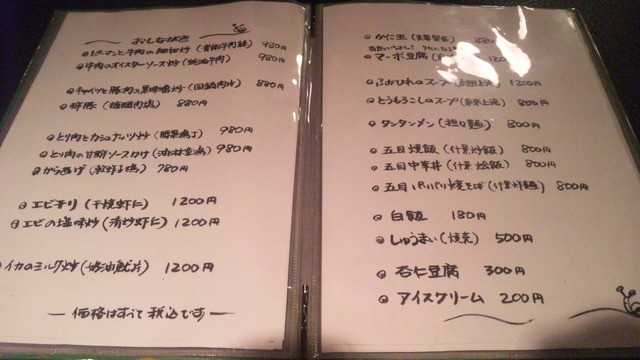 おしながき
ピーマンと牛肉の細切炒(青椒牛肉絲) 980円
牛肉のオイスターソース炒(蚝油牛肉) 980円
キャベツと豚肉の黒味噌炒(回鍋肉片) 880円
酢豚 880円
とり肉とカシューナッツ炒(腰果鶏丁) 980円
とり肉の甘酢ソースかけ(油淋童鶏) 980円
からあげ 780円
エビチリ(干焼虾仁) 1200円
エビの塩味炒(清炒虾仁) 1200円
イカのミルク炒(奶油魷片) 1200円
― 価格はすべて税込です ―
かに玉(芙蓉蟹蛋) 880円
マーボ豆腐
ふかひれのスープ 1200円
とうもろこしのスープ(粟米上湯) 800円
タンタンメン(担々麺) 800円
五目焼飯(什景炒飯) 800円
五目中華丼(什景烩飯) 800円
五目パリパリ焼そば(什景炒麺) 800円
白飯 180円
しゅうまい(焼売) 500円
杏仁豆腐 300円
アイスクリーム 200円